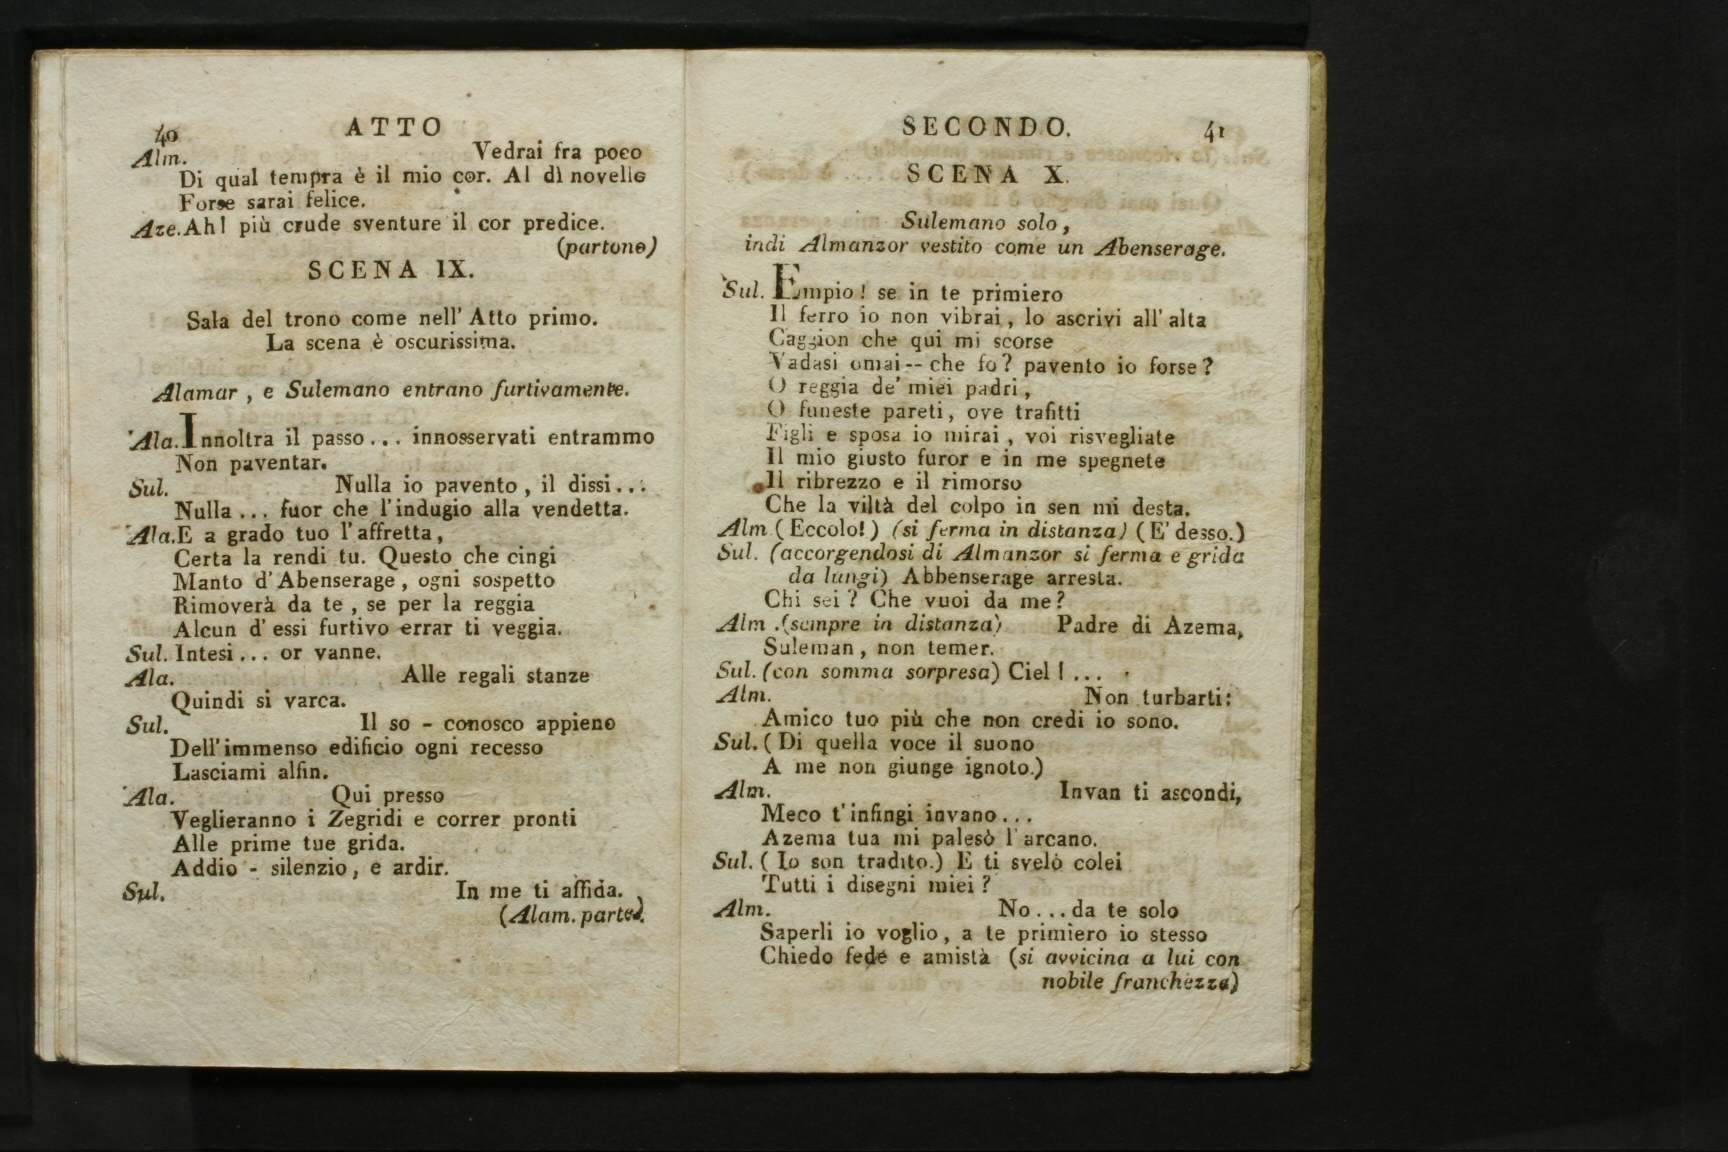 40 ATTO
Alm. Vedrai fra poco
Di qual tempra è il mio cor. Al dì novello
Forse sarai felice.
Aze. Ah! più crude sventure il cor predice.
(partono)
SCENA IX.
Sala del trono come nell' Atto primo.
La scena è oscurissima.
Alamar, e Sulemano entrano furtivamente.
Ala. Innoltra il passo... innosservati entrammo
Non paventar.
Sul. Nulla io pavento, il dissi...
Nulla... fuor che l'indugio alla vendetta.
Ala. E a grado tuo l'affretta,
Certa la rendi tu. Questo che cingi
Manto d'Abenserage, ogni sospetto
Rimoverà da te, se per la reggia
Alcun d'essi furtivo errar ti veggia.
Sul. Intesi... or vanne.
Ala. Alle regali stanze
Quindi si varca.
Sul. Il so - conosco appieno
Dell'immenso edificio ogni recesso
Lasciami alfin.
Ala. Qui presso
Veglieranno i Zegridi e correr pronti
Alle prime tue grida.
Addio - silenzio, e ardir.
Sul. In me ti affida.
(Alam. parte).
SECONDO. 41
SCENA X.
Sulemano solo,
indi Almanzor vestito come un Abenserage.
Sul. Empio! se in te primiero
Il ferro io non vibrai, lo ascrivi all'alta
Caggion che qui mi scorse
Vadasi omai -- che fo? pavento io forse?
O reggia de' miei padri,
O funeste pareti, ove trafitti
Figli e sposa io mirai, voi risvegliate
Il mio giusto furor e in me spegnete
Il ribrezzo e il rimorso
Che la viltà del colpo in sen mi desta.
Alm (Eccolo!) (si ferma in distanza) (E' desso.)
Sul. (accorgendosi di Almanzor si ferma e grida
da lungi) Abbenserage arresta.
Chi sei? Che vuoi da me?
Alm. (sempre in distanza) Padre di Azema,
Suleman, non temer.
Sul. (con somma sorpresa) Ciel!...
Alm. Non turbarti:
Amico tuo più che non credi io sono.
Sul. (Di quella voce il suono
A me non giunge ignoto.)
Alm. Invan ti ascondi,
Meco t'infingi invano...
Azema tua mi palesò l'arcano.
Sul. (Io son tradito.) E ti svelò colei
Tutti i disegni miei?
Alm. No... da te solo
Saperli io voglio, a te primiero io stesso
Chiedo fede e amistà (si avvicina a lui con
nobile franchezza)